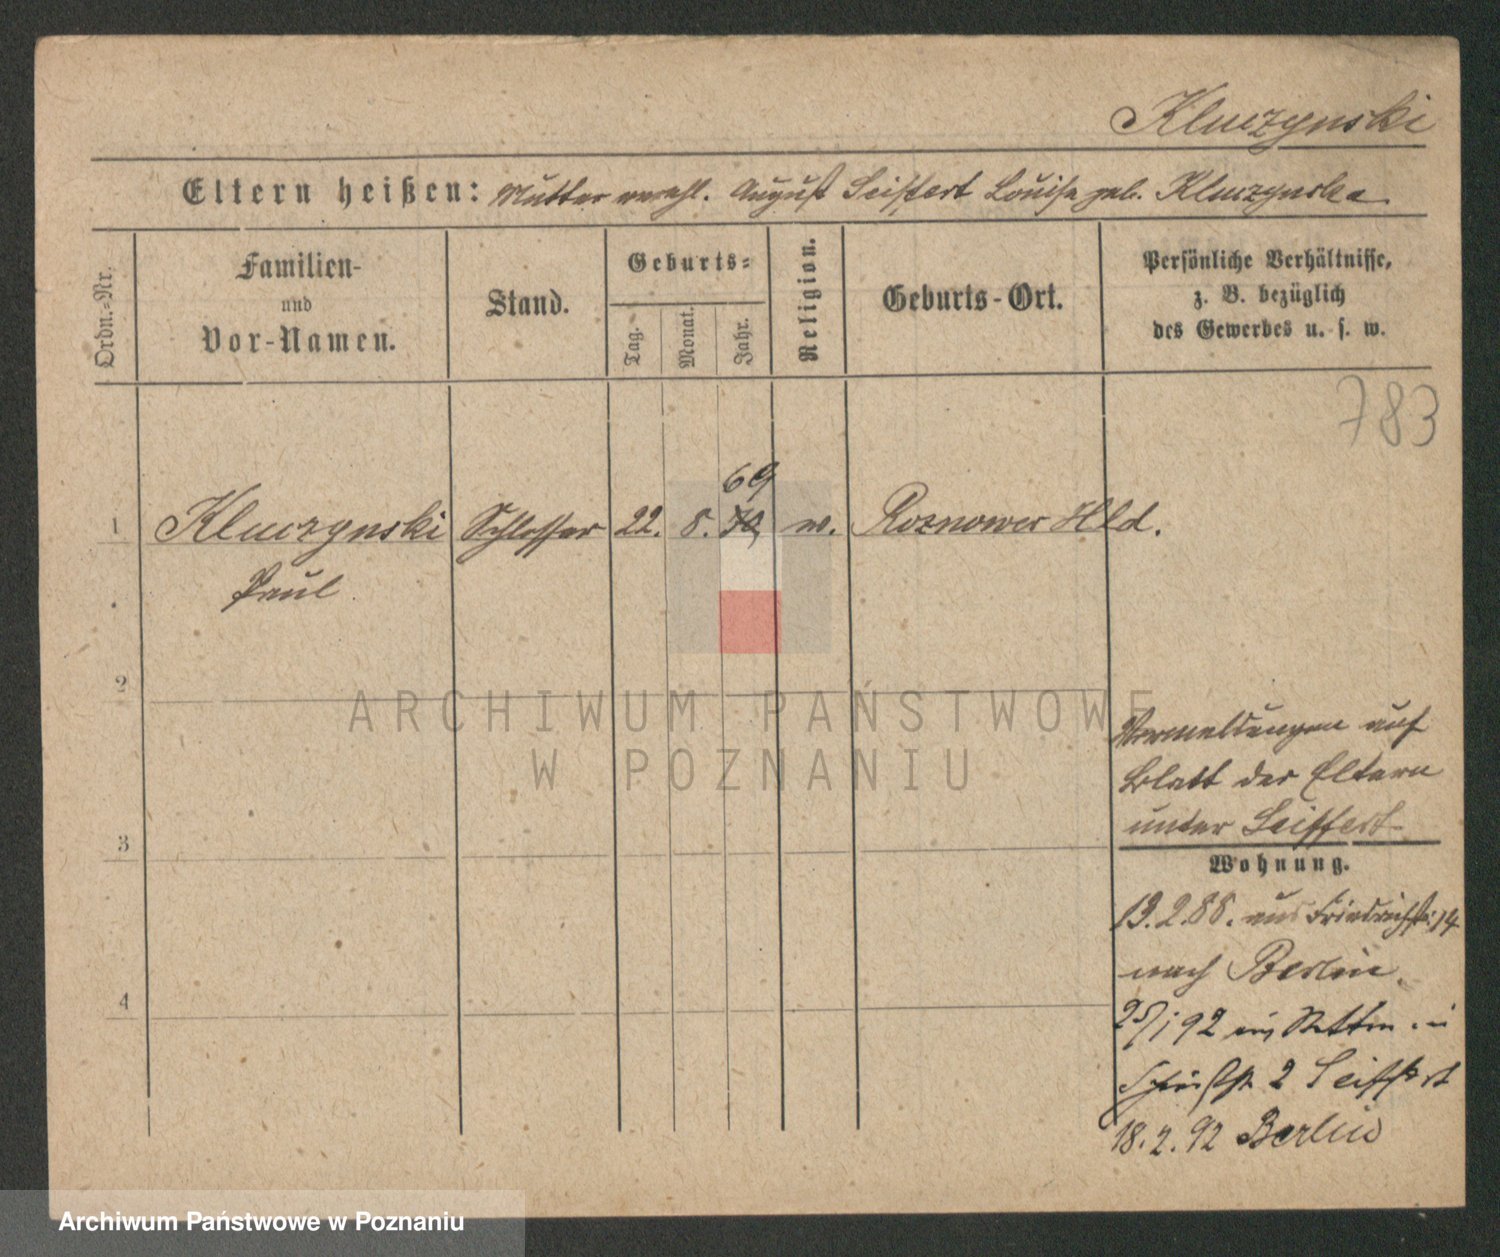 Kluczynski
Eltern heißen: Mutter verehl. August Seiffert Louise geb. Kluczynska
Ordn.-Nr.
Familien-
und
Vor-Namen.
Stand.
Geburts-
Tag.
Monat.
Jahr.
Religion.
Geburts-Ort.
Persönliche Verhältnisse,
z. B. bezüglich
des Gewerbes u. s. w.
783
69
1 Kluczynski Schlosser 22. 8. 70 ev. Roznower Hld.
Paul
2
ARCHIWUM PAŃSTWOWE
W POZNANIU
Vermeldungen auf
Blatt der Eltern
unter Seiffert
3
Wohnung.
13.2.88. aus Friedrichstr. 14
nach Berlin.
4
25/1 92 aus Stettin in
2 Seiffert
18.2.92 Berlin
Archiwum Państwowe w Poznaniu